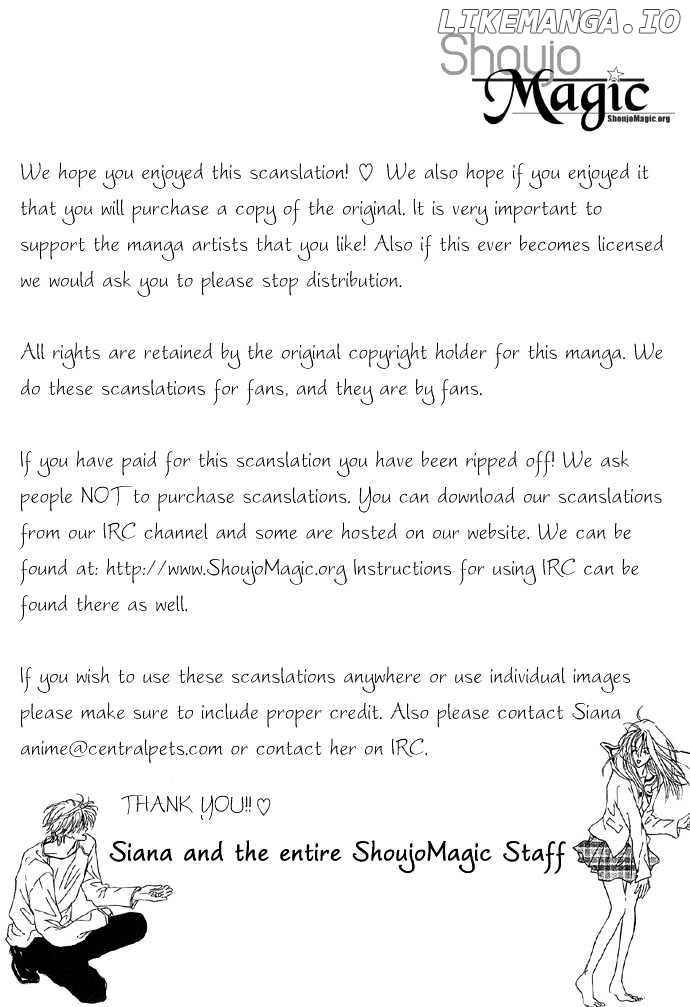 LIKEMANGA.IO
Shoujo
Magic
ShoujoMagic.org
We hope you enjoyed this scanslation! ♡ We also hope if you enjoyed it
that you will purchase a copy of the original. It is very important to
support the manga artists that you like! Also if this ever becomes licensed
we would ask you to please stop distribution.
All rights are retained by the original copyright holder for this manga. We
do these scanslations for fans, and they are by fans.
If you have paid for this scanslation you have been ripped off! We ask
people NOT to purchase scanslations. You can download our scanslations
from our IRC channel and some are hosted on our website. We can be
found at: http://www.ShoujoMagic.org Instructions for using IRC can be
found there as well.
If you wish to use these scanslations anywhere or use individual images
please make sure to include proper credit. Also please contact Siana
anime@centralpets.com or contact her on IRC.
THANK YOU!! ♡
Siana and the entire ShoujoMagic Staff